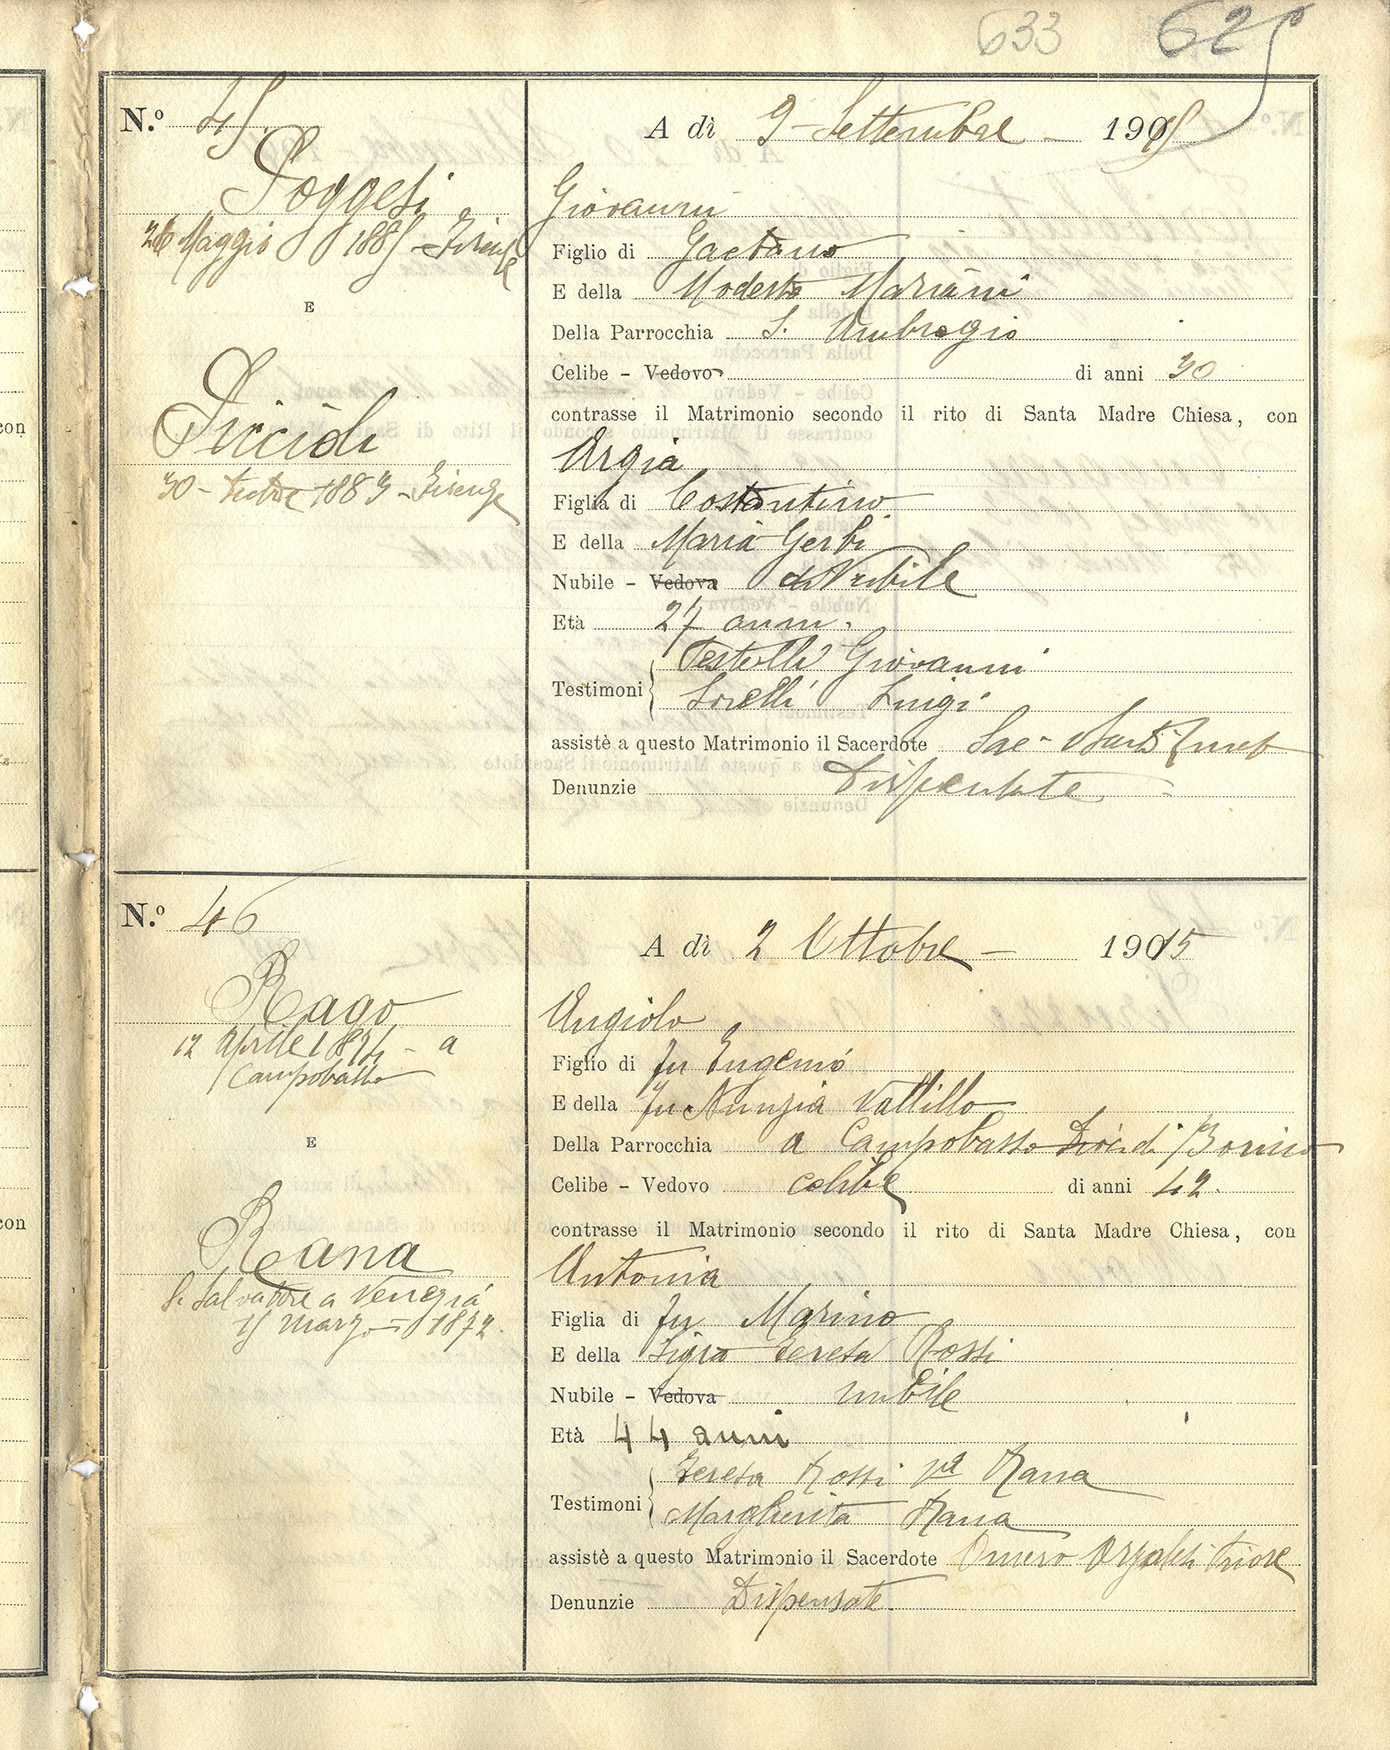 633 625
N.º 45
A dì 9 Settembre 1915
Poggesi
26 Maggio 1885 - Firenze
E
Piccioli
30 - 1883 - Firenze
Giovanni
Figlio di Gaetano
E della Modesta Mariani
Della Parrocchia S. Ambrogio
Celibe - Vedovo di anni 30
contrasse il Matrimonio secondo il rito di Santa Madre Chiesa, con
Argia
Figlia di Costantino
E della Maria Gerbi
Nubile - Vedova Nubile
Età 27 anni.
Testelli Giovanni
Testimoni
Sorelli Luigi
assistè a questo Matrimonio il Sacerdote Sac.
Denunzie Dispensate
N.º 46
A dì 2 Ottobre 1915
Rago
12 Aprile 1874 - a
Campobasso
E
Rana
S. Salvatore a Venezia
15 Marzo 1872.
Angiolo
Figlio di fu Eugenio
E della fu Nunzia Vattillo
Della Parrocchia a Campobasso Dioc. di
Celibe - Vedovo celibe di anni 42.
contrasse il Matrimonio secondo il rito di Santa Madre Chiesa, con
Antonia
Figlia di fu Marino
E della Sigra Teresa Rossi
Nubile - Vedova nubile
Età 44 anni
Teresa Rossi va Rana
Testimoni
Margherita Rana
assistè a questo Matrimonio il Sacerdote Omero Priore
Denunzie Dispensate.
con
con